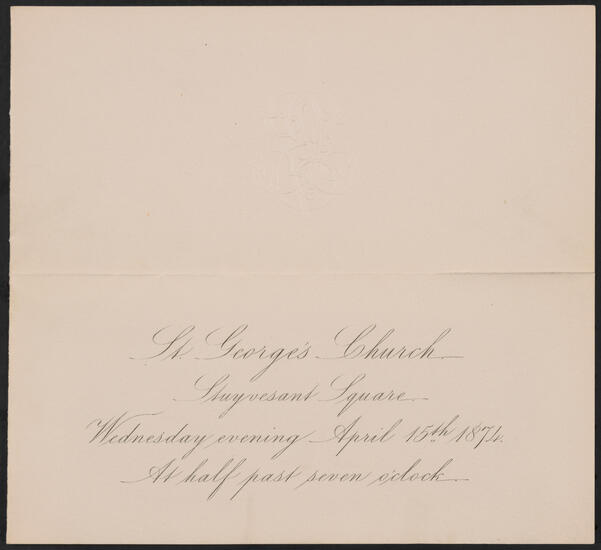 St. George's Church
Stuyvesant Square
Wednesday evening April 15th 1874.
At half past seven o'clock